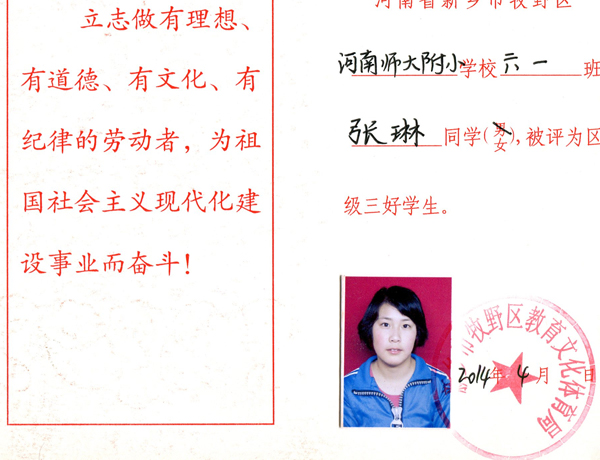 立志做有理想、
有道德、有文化、有
纪律的劳动者，为祖
国社会主义现代化建
设事业而奋斗！
河南省新乡市牧野区
河南师大附小学校六一班
张琳同学(男女)，被评为区
级三好学生。
市牧野区教育文化体育局
2014年4月 日